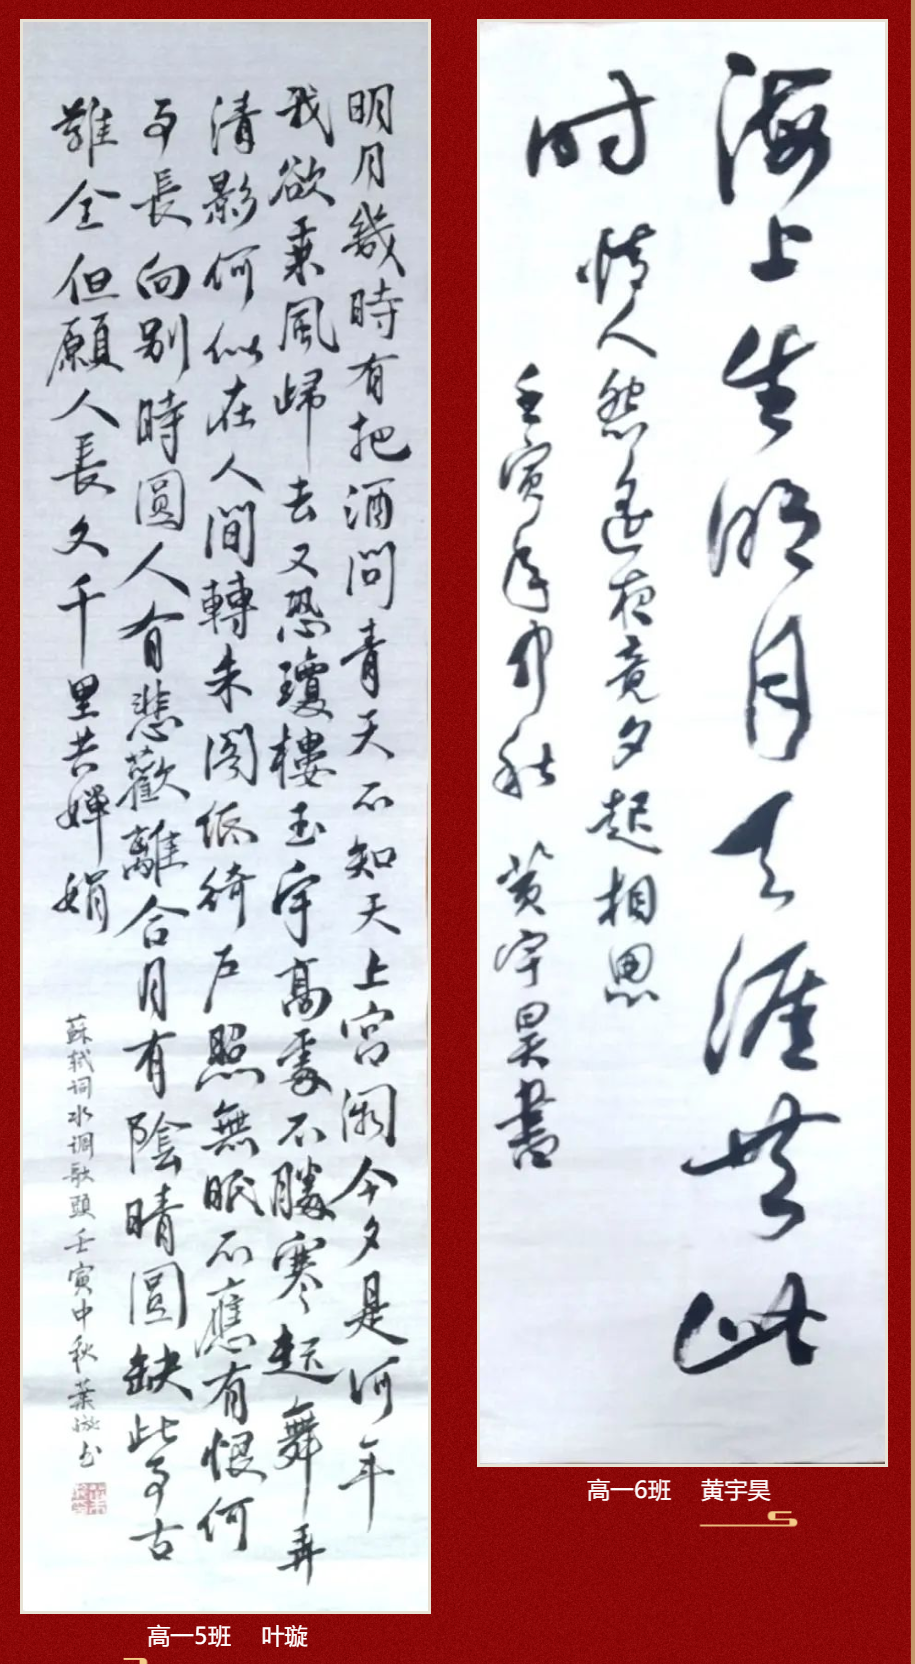 明月幾時有把酒問青天不知天上宮闕今夕是何年
我欲乘風歸去又恐瓊樓玉宇高處不勝寒起舞弄
清影何似在人間轉朱閣低綺戶照無眠不應有恨何
事長向别時圓人有悲歡離合月有陰晴圓缺此事古
難全但願人長久千里共嬋娟
蘇軾词水调歌頭壬寅中秋葉璇书
高一5班 叶璇
海上生明月天涯共此
时
情人怨遥夜竟夕起相思
壬寅年中秋 黄宇昊書
高一6班 黄宇昊